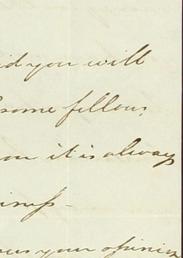 you will
some fellow
it is always
your opinion